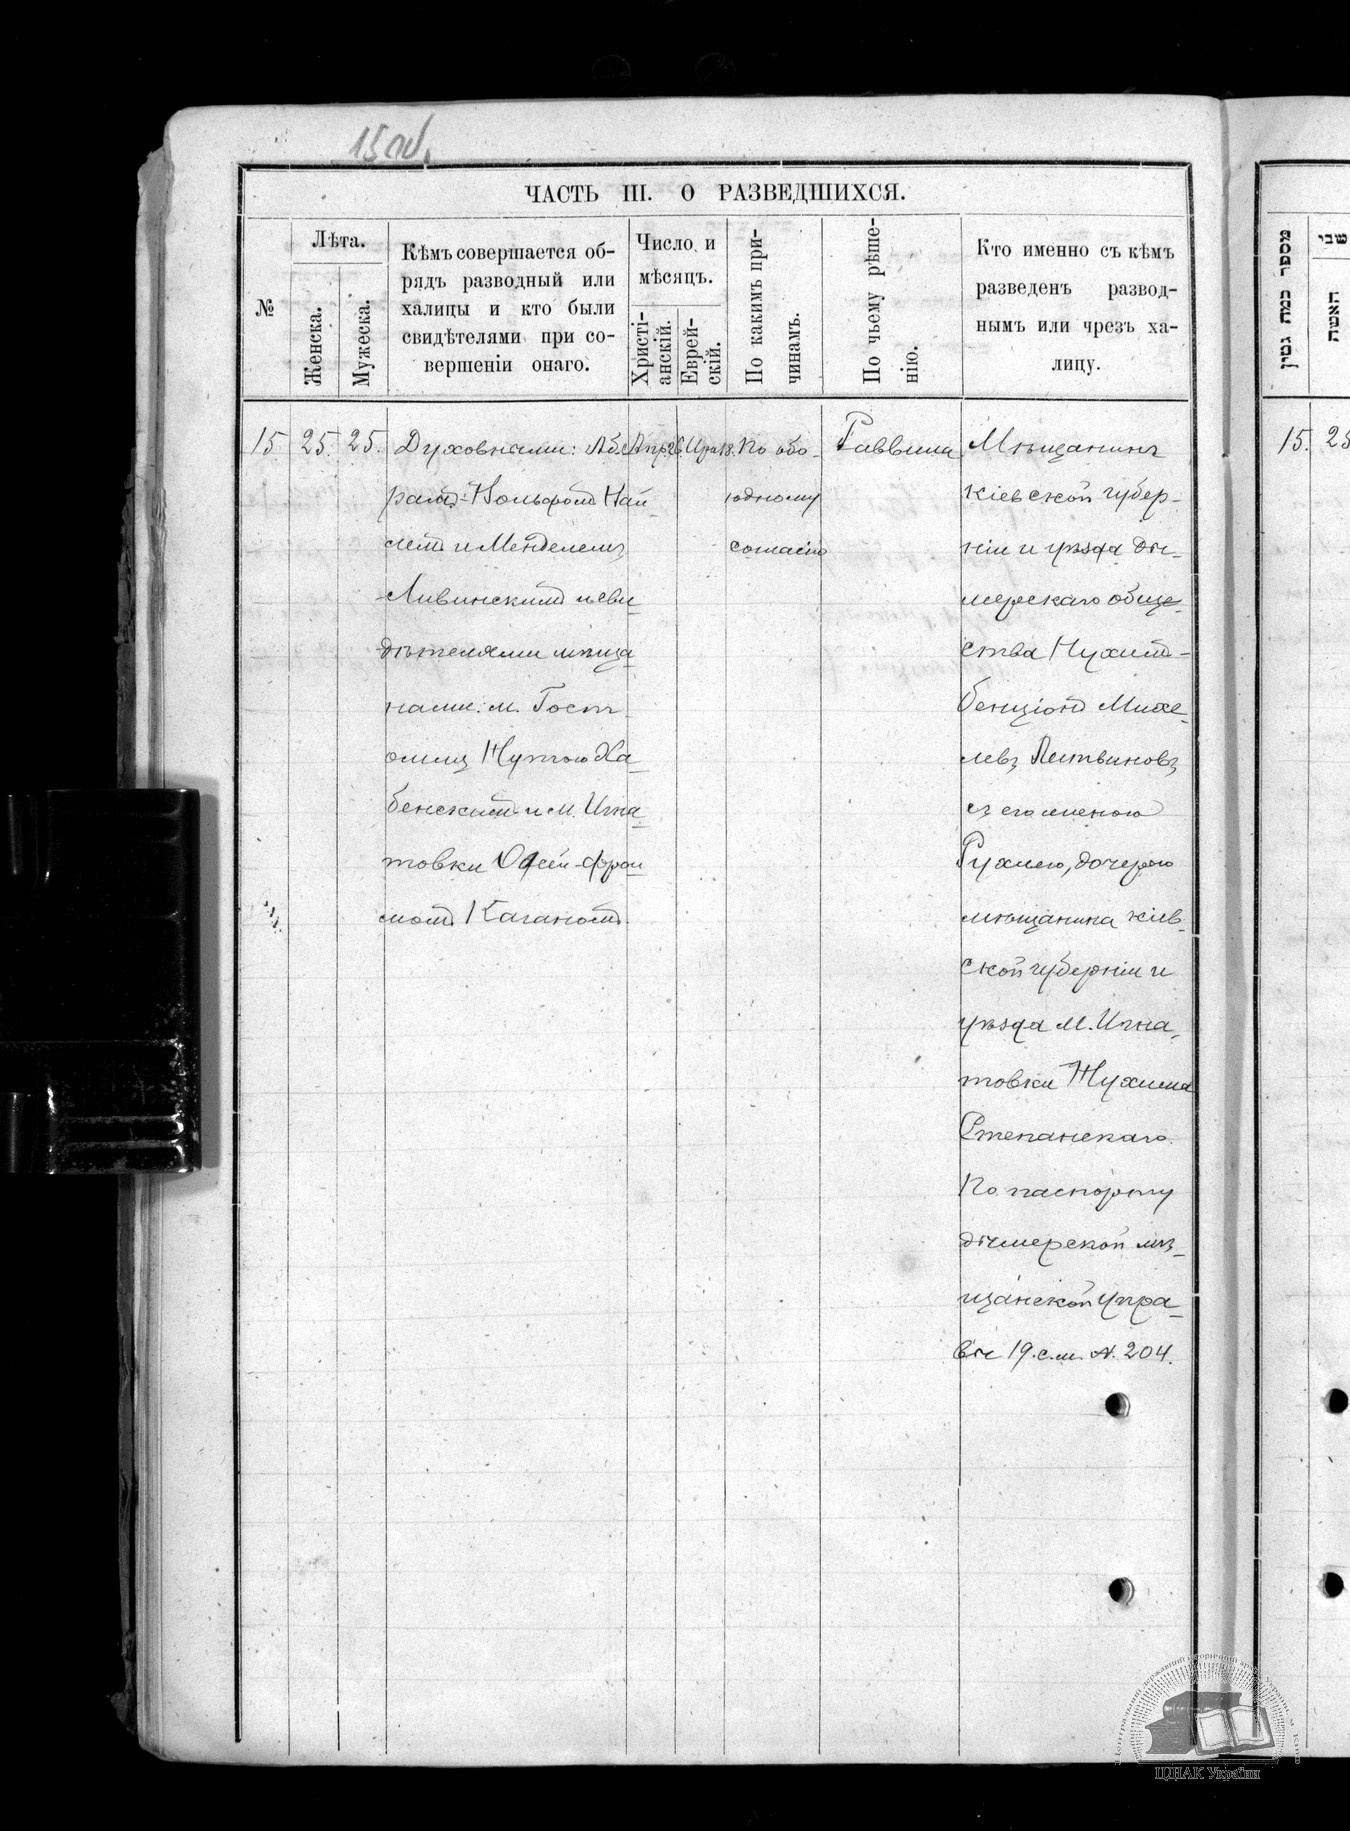 15 об.
ЧАСТЬ III. О РАЗВЕДШИХСЯ.
№
Лѣта.
Женска.
Мужеска.
Кѣмъ совершается об-
рядъ разводный или
халицы и кто были
свидѣтелями при со-
вершеніи онаго.
Число и
мѣсяцъ.
Христі-
анскій.
Еврей-
скій.
По какимъ при-
чинамъ.
По чьему рѣше-
нію.
Кто именно съ кѣмъ
разведенъ развод-
нымъ или чрезъ ха-
лицу.
15.
25.
25.
Духовными: Аб-
рамъ-Вольфомъ
и Менделемъ
Ливинскимъ и сви-
дѣтелями мѣща-
нами: м. Гост-
омли Нутою Ха-
бенскимъ и м. Игна-
товки
момъ Каганомъ.
Апр. 26.
Ира 18.
По обо-
юдному
согласію
Раввина
Мѣщанинъ
Кіевской губер-
ніи и уѣзда Ды-
мерскаго обще-
ства Нухимъ-
Бенціонъ Михе-
левъ Литвиновъ
съ его женою
Рухлею, дочерью
мѣщанина Кіев-
ской губерніи и
уѣзда м. Игна-
товки Нухима
Степанскаго.
По паспорту
Дымерской мѣ-
щанской упра-
вы 19. с.м. №. 204.
מספר כמה גטין
שני
האשה
15.
25
ЦДІАК України